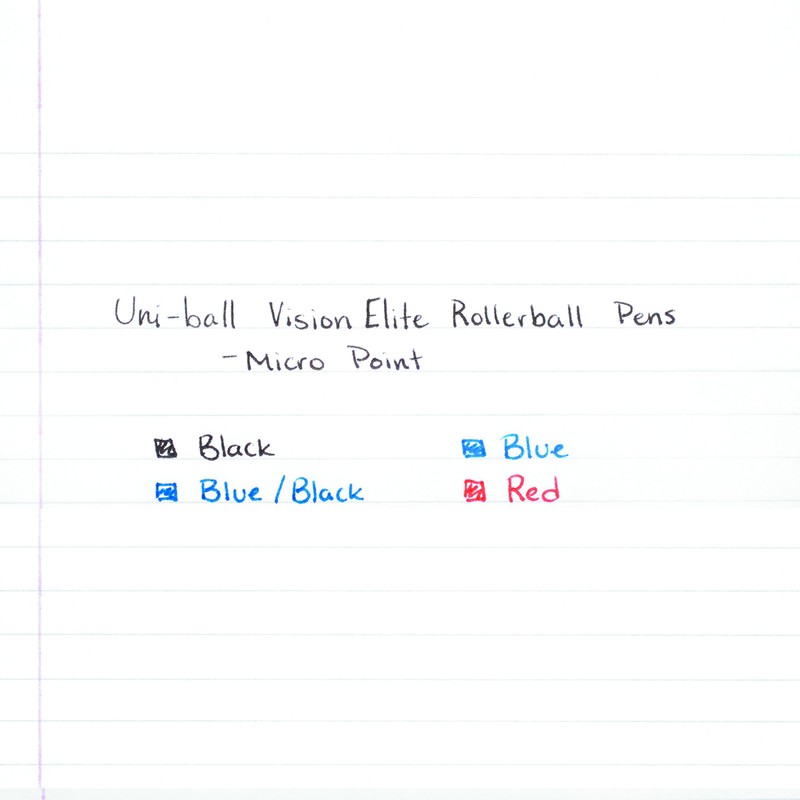 Uni-ball Vision Elite Rollerball Pens
-Micro Point
Black Blue
Blue/Black Red